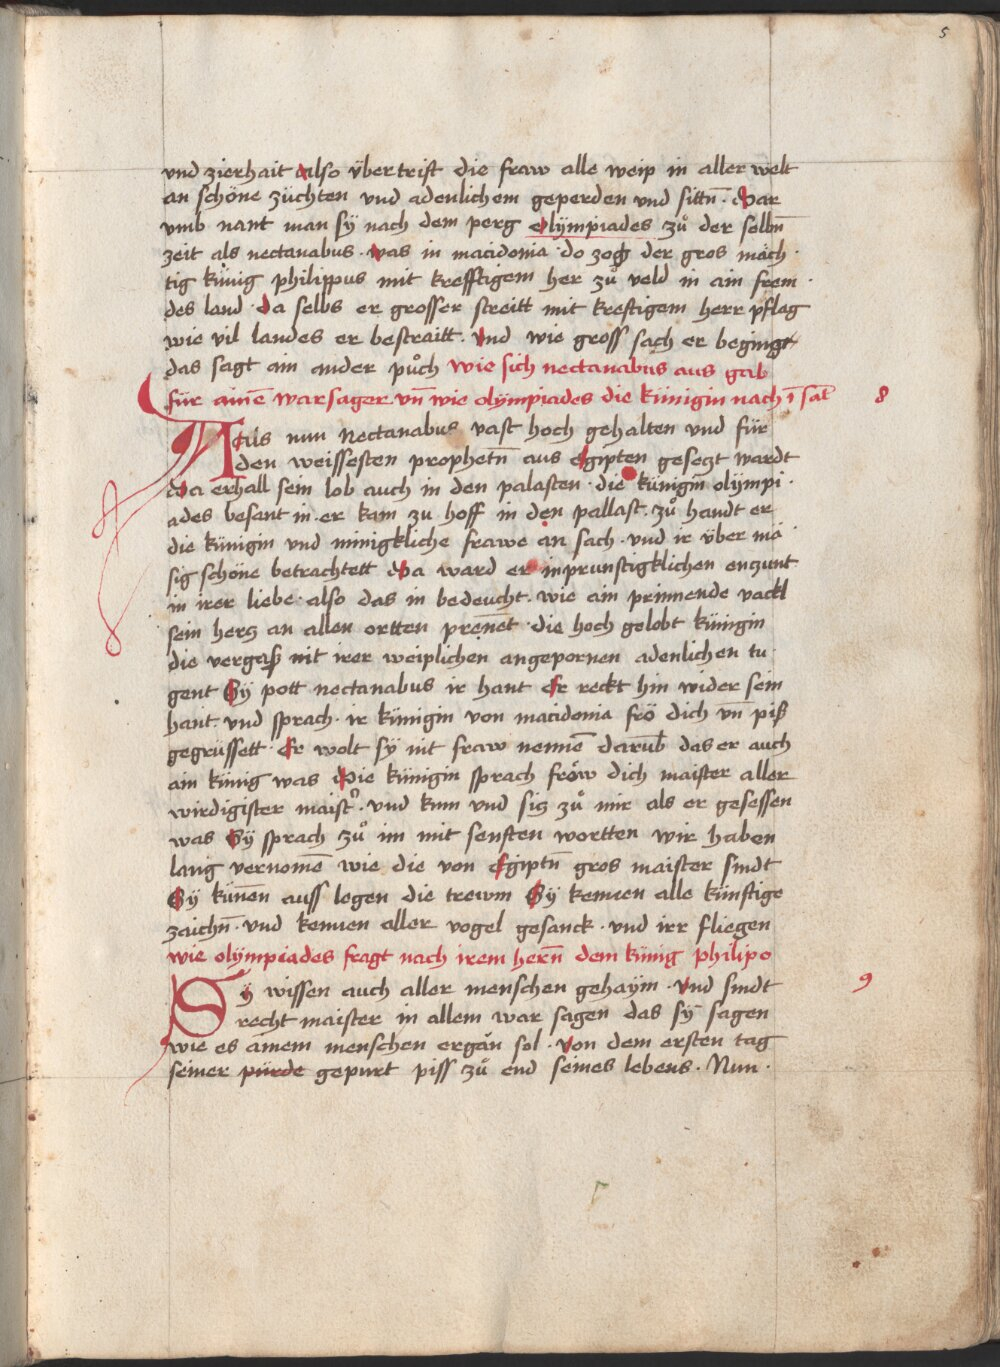 5
vnd zierhait also übertrift die fraw alle weip in aller welt
an schöne züchten vnd adenlichem geperden vnd sittn̄ · Dar
vmb nant man sÿ nach dem perg olÿmpiades zů der selbn̄
zeit als nectanabus · was in macidonia · do zoch der gros mäch ·
tig künig philippus mit krefftigem her zů veld in ain frem ·
des land · da selbs er grosser streitt mit kreftigem herr pflag
wie vil landes er bestraitt · Vnd wie gross sach er beging
das sagt ain ander půch wie sich nectanabus aus gab
für ainē warsager vn̄ wie olÿmpiades die künigin nach ī sat 8
Als nun Nectanabus vast hoch gehalten vnd für
den weissesten prophetn̄ aus egipten gesetzt wardt
Da erhall sein lob auch in den palasten · die künigin olÿmpi ·
ades besant in · er kam zu hoff in den pallast · zů handt er
die künigin vnd minigkliche frawe an sach · vnd ir über mä
sig schöne betrachtett Da ward er inprunstigklichen enzunt
in irer liebe · also das in bedeucht · wie ain prinnende vackl
sein hertz an allen ortten pren̄et · die hoch gelobt künigin
die vergaß nit irer weiplichen angepornen adenlichen tu ·
gent Sÿ pott nectanabus ir hant Er reckt hin wider sein
hant · vnd sprach · ir künigin von macidonia frö dich vn̄ piß
gegrüssett · Er wolt sÿ nit fraw nennē darub̄ das er auch
ain künig was Die künigin sprach fröw dich maister aller
wirdigister maist̓ · vnd kum vnd sitz zů mir als er gesessen
was Sÿ sprach zů im mit senften wortten wir haben
lang vernomē wie die von Egiptn̄ gros maister sindt
Sÿ kün̄en auss legen die trewm Sÿ kennen alle künftige
zaichn̄ · vnd kennen aller vogel gesanck · vnd irr fliegen
wie olÿmpiades fragt nach irem hern̄ dem künig philipo
Sÿ wissen auch aller menschen gehaÿm · Vnd sindt 9
recht maister in allem war sagen das sÿ sagen
wie es ainem menschen ergän sol · von dem ersten tag
seiner purde gepurt piss zů end seines lebens · Nun ·